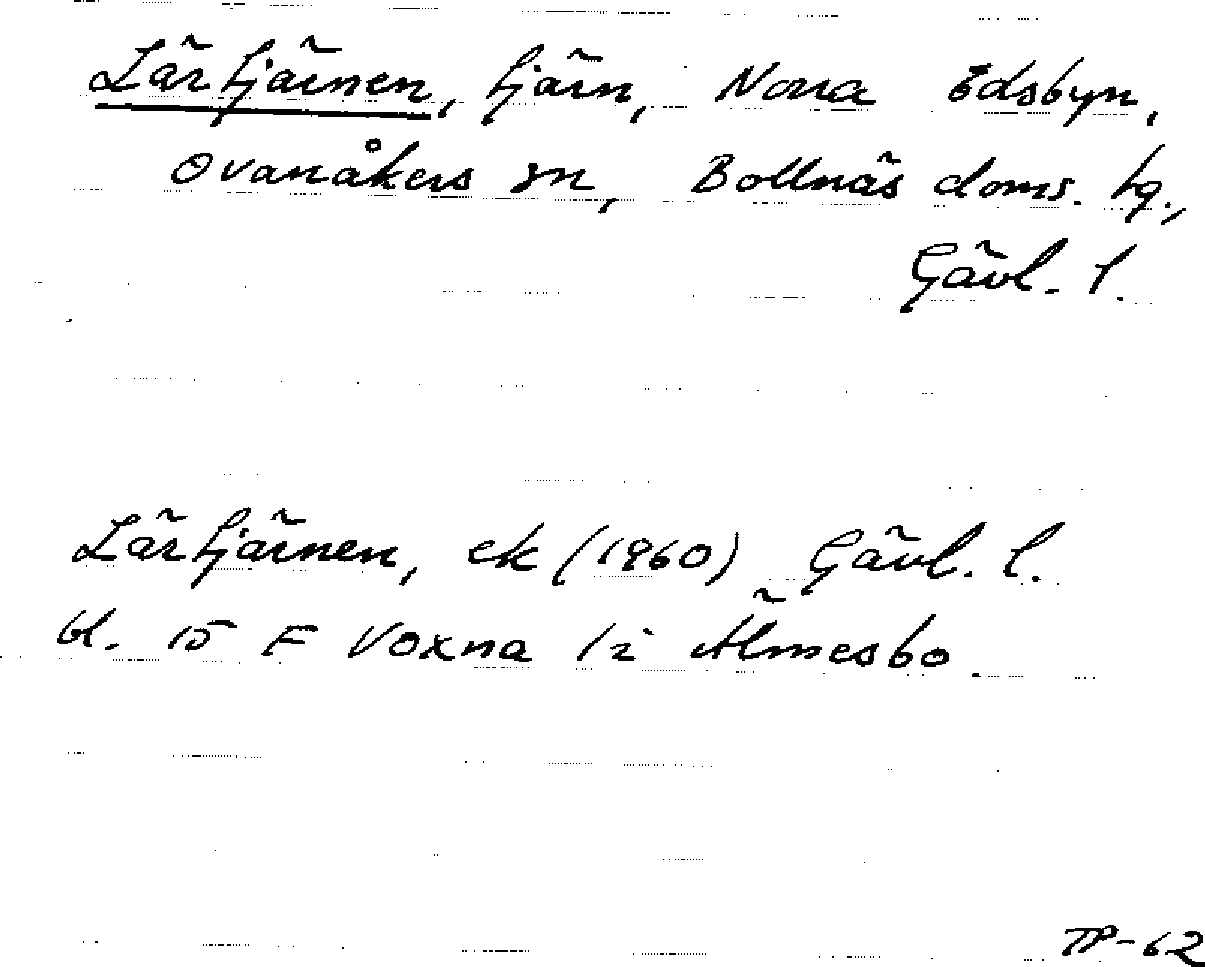 Lärtjärnen, tjärn, Norra Edsbyn,
Ovanåkers sn, Bollnäs doms. tg.,
Gävl. l.
Lärtjärnen, ek (1960) Gävl. l.
bl. 15 F Voxna 1 i Älmesbo.
TP-62